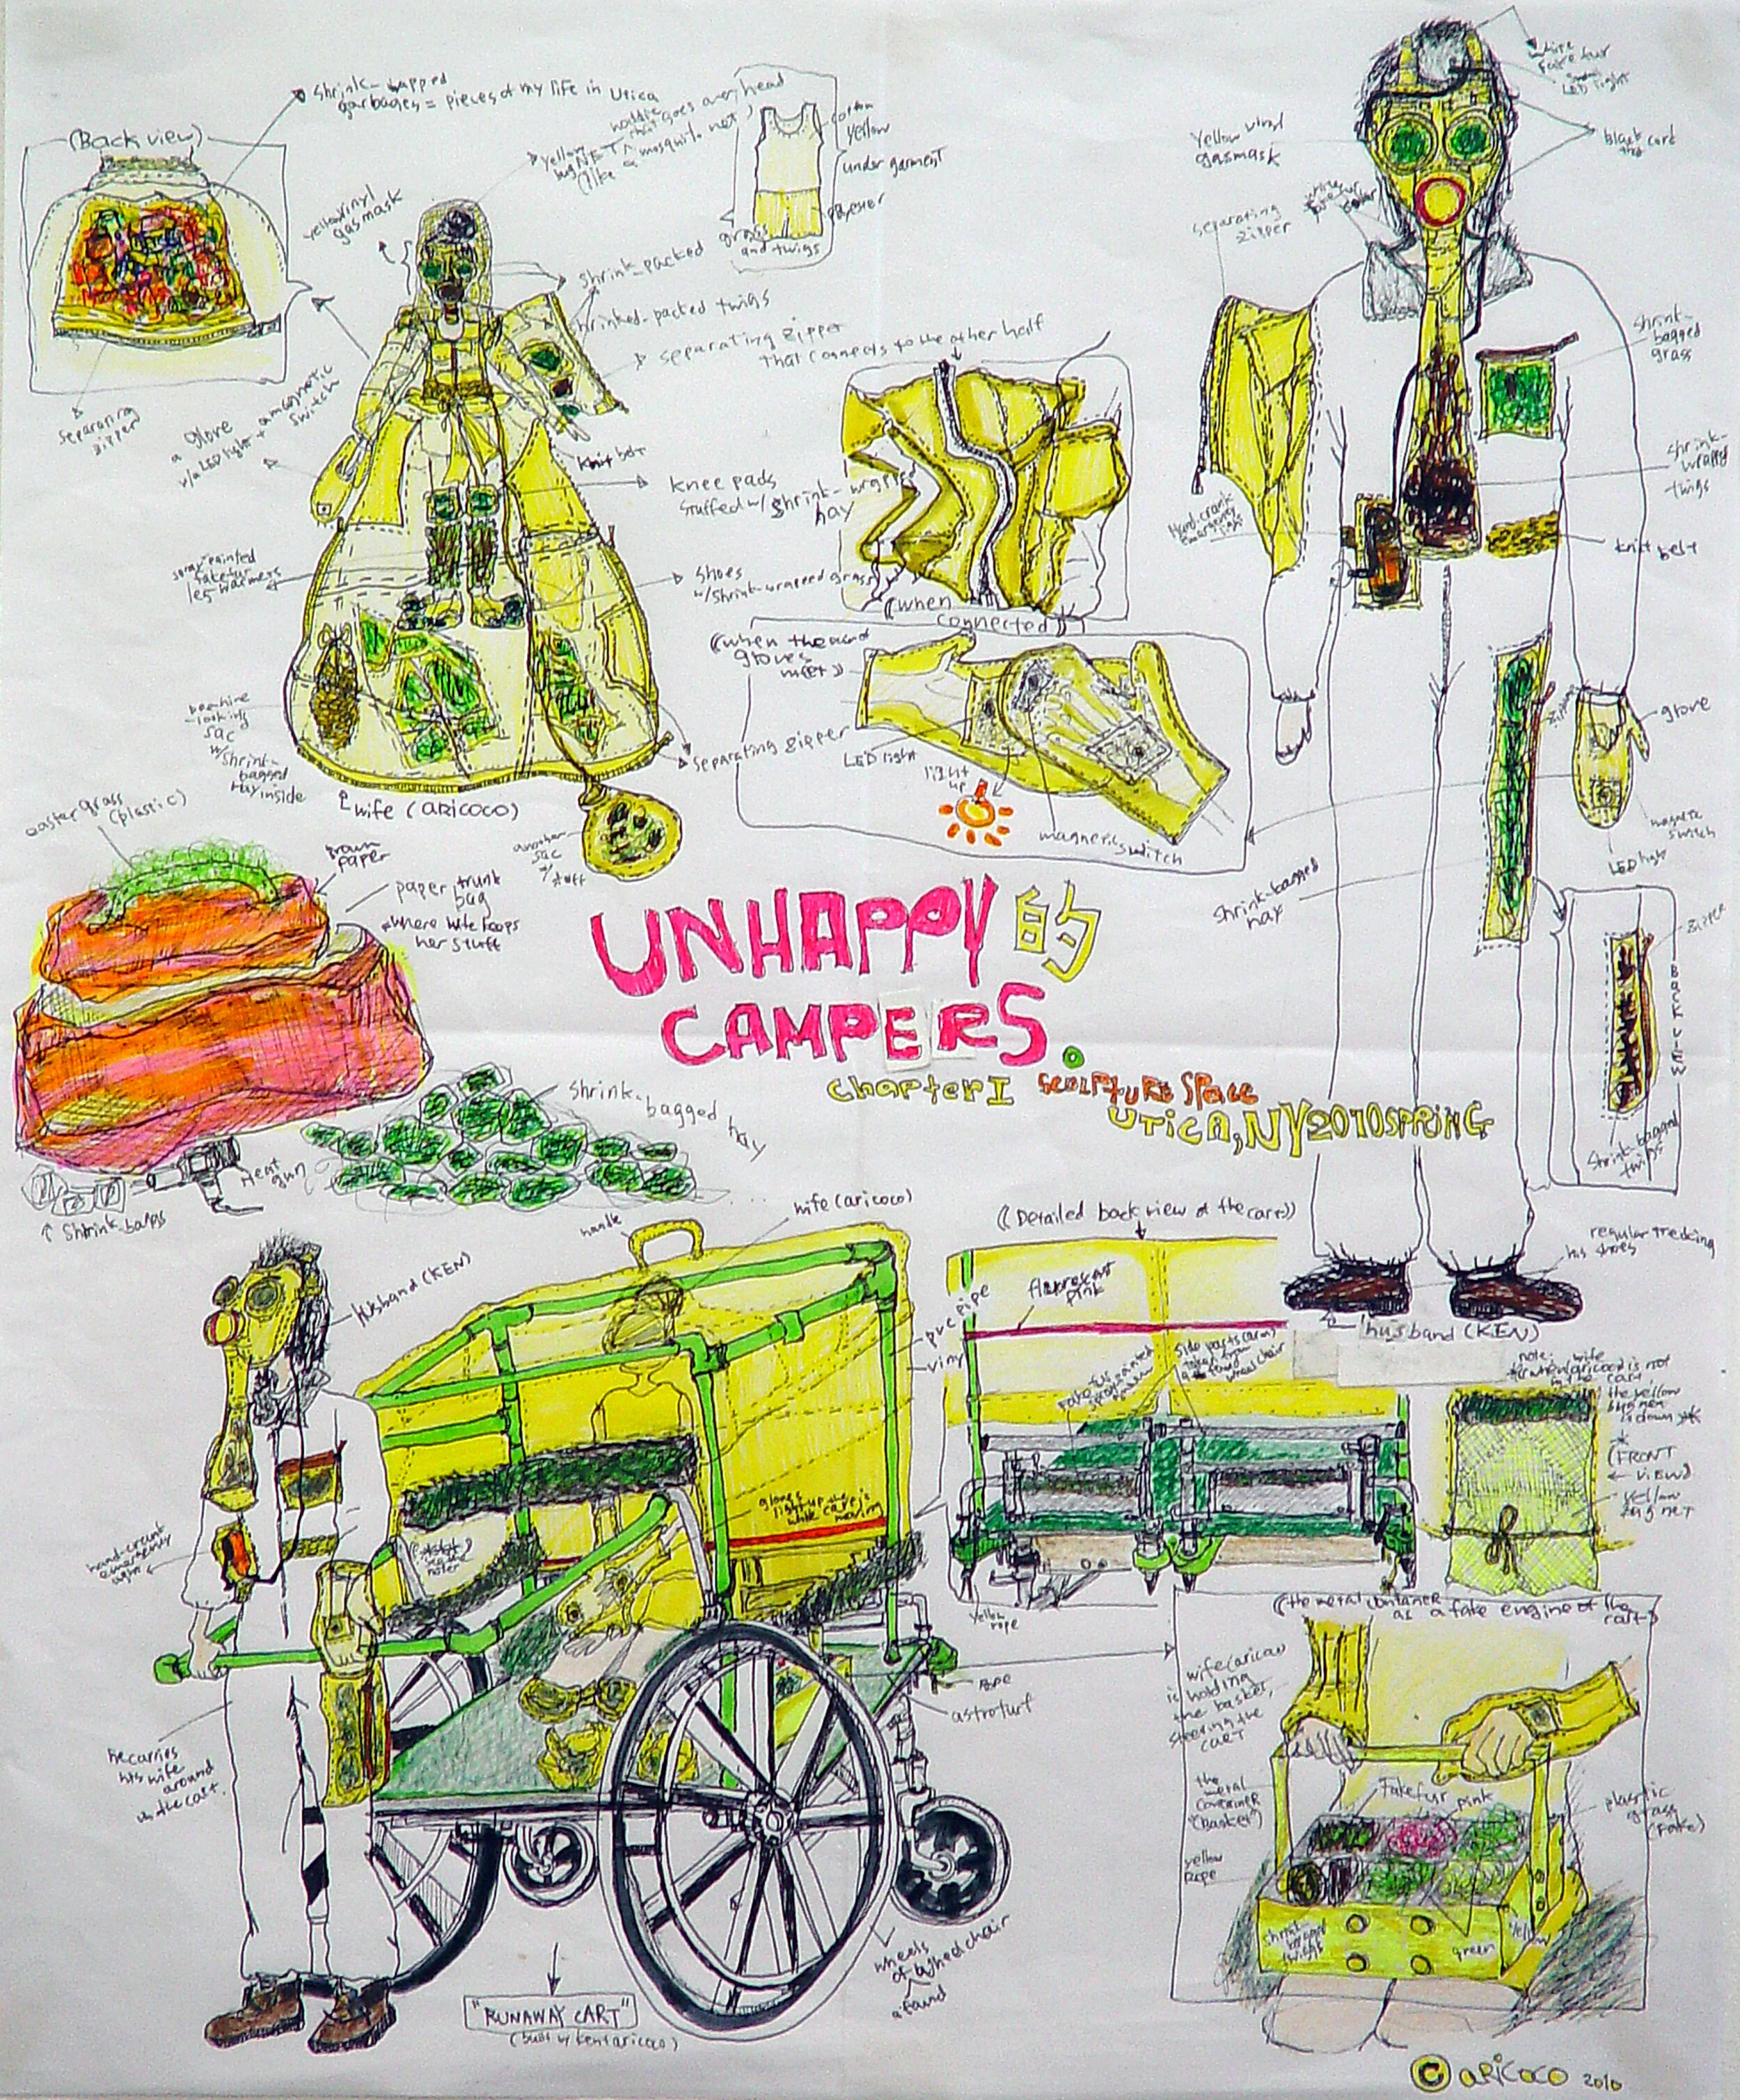 shrink-wapped
garbages = pieces of my life in Utica
(Back view)
separating
zipper
yellow vinyl
gasmask
yellow
bug NET
that goes over head
(like a mosquito net)
cotton
yellow
under garment
polyester
grass
and twigs
shrink-packed
shrinked-packed twigs
separating zipper
that connects to the other half
a glove
w/a LED light + a magnetic
switch
knit belt
knee pads
stuffed w/ shrink-wrapped
hay
spray painted
fakefur
leg-warmers
shoes
w/shrink-wrapped grass
-looking
sac
w/shrink-
bagged
hay inside
separating zipper
wife (aricoco)
another
sac
w/stuff
((when
connected))
gloves
meet))
LED light
light
up
magnetic switch
white
fake fur
LED light
Yellow vinyl
gasmask
separating
zipper
shrink-
bagged
grass
shrink-
wrapped
twigs
Hand-crank
emergency
light
knit belt
glove
magnetic
switch
LED light
shrink-bagged
hay
zipper
BACK VIEW
shrink-bagged
twigs
regular trecking
his shoes
husband (KEN)
easter grass
(plastic)
brown
paper
paper trunk
bag
where wife keeps
her stuff
UNHAPPY的
CAMPERS.
chapter I SCULPTURE SPACE
UTICA, NY 2010 SPRING
shrink-bagged hay
Heat
gun
shrink-bags
handle
wife (aricoco)
Husband (KEN)
pvc pipe
vinyl
gloves
light up when
while cart is
moving
hand-crank
emergency
light
he carries
his wife
around
on the cart.
rope
astroturf
wheels
of a wheel chair
a found
"RUNAWAY CART"
(built by Ken+aricoco)
((Detailed back view of the cart))
fluorescent
pink
side parts (arm)
taken from
a found
wheel chair
yellow
rope
note: wife
when (aricoco) is not
in the cart
the yellow
bug net
is down
(FRONT
VIEW)
yellow
bug net
((the metal container
as a fake engine of the
cart))
wife (aricoco)
is holding
the basket,
steering the
CART
the
metal
container
(Basket)
yellow
rope
fakefur
pink
plastic
grass
(fake)
shrink
bagged
twigs
green
yellow
© aRiCoCo 2010